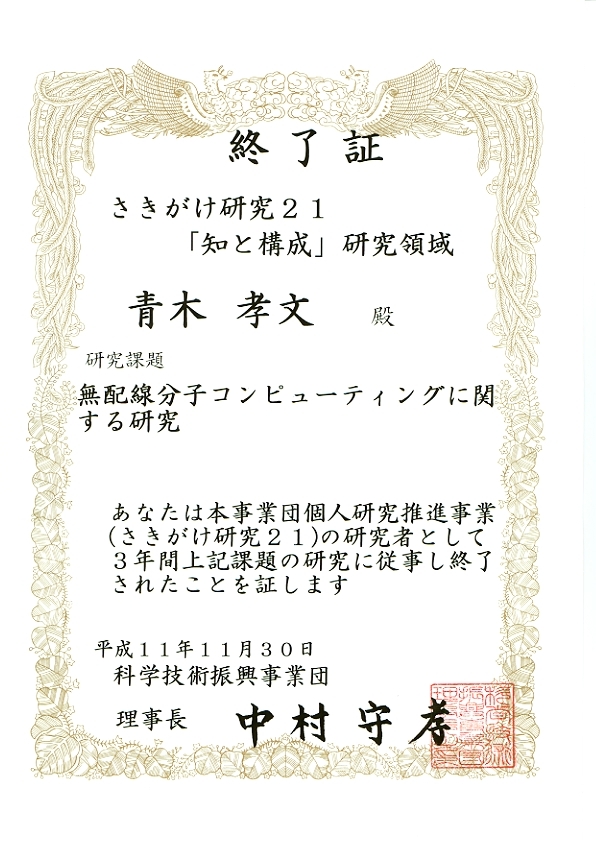 終了証
さきがけ研究２１
「知と構成」研究領域
青木 孝文 殿
研究課題
無配線分子コンピューティングに関
する研究
あなたは本事業団個人研究推進事業
(さきがけ研究２１)の研究者として
３年間上記課題の研究に従事し終了
されたことを証します
平成１１年１１月３０日
科学技術振興事業団
理事長 中村守孝